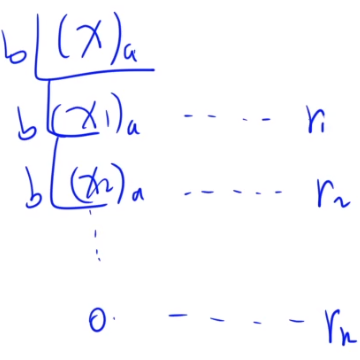 b (x)a
b (x1)a ---- r1
b (x2)a ----- r2
⋮
0. ---- rn